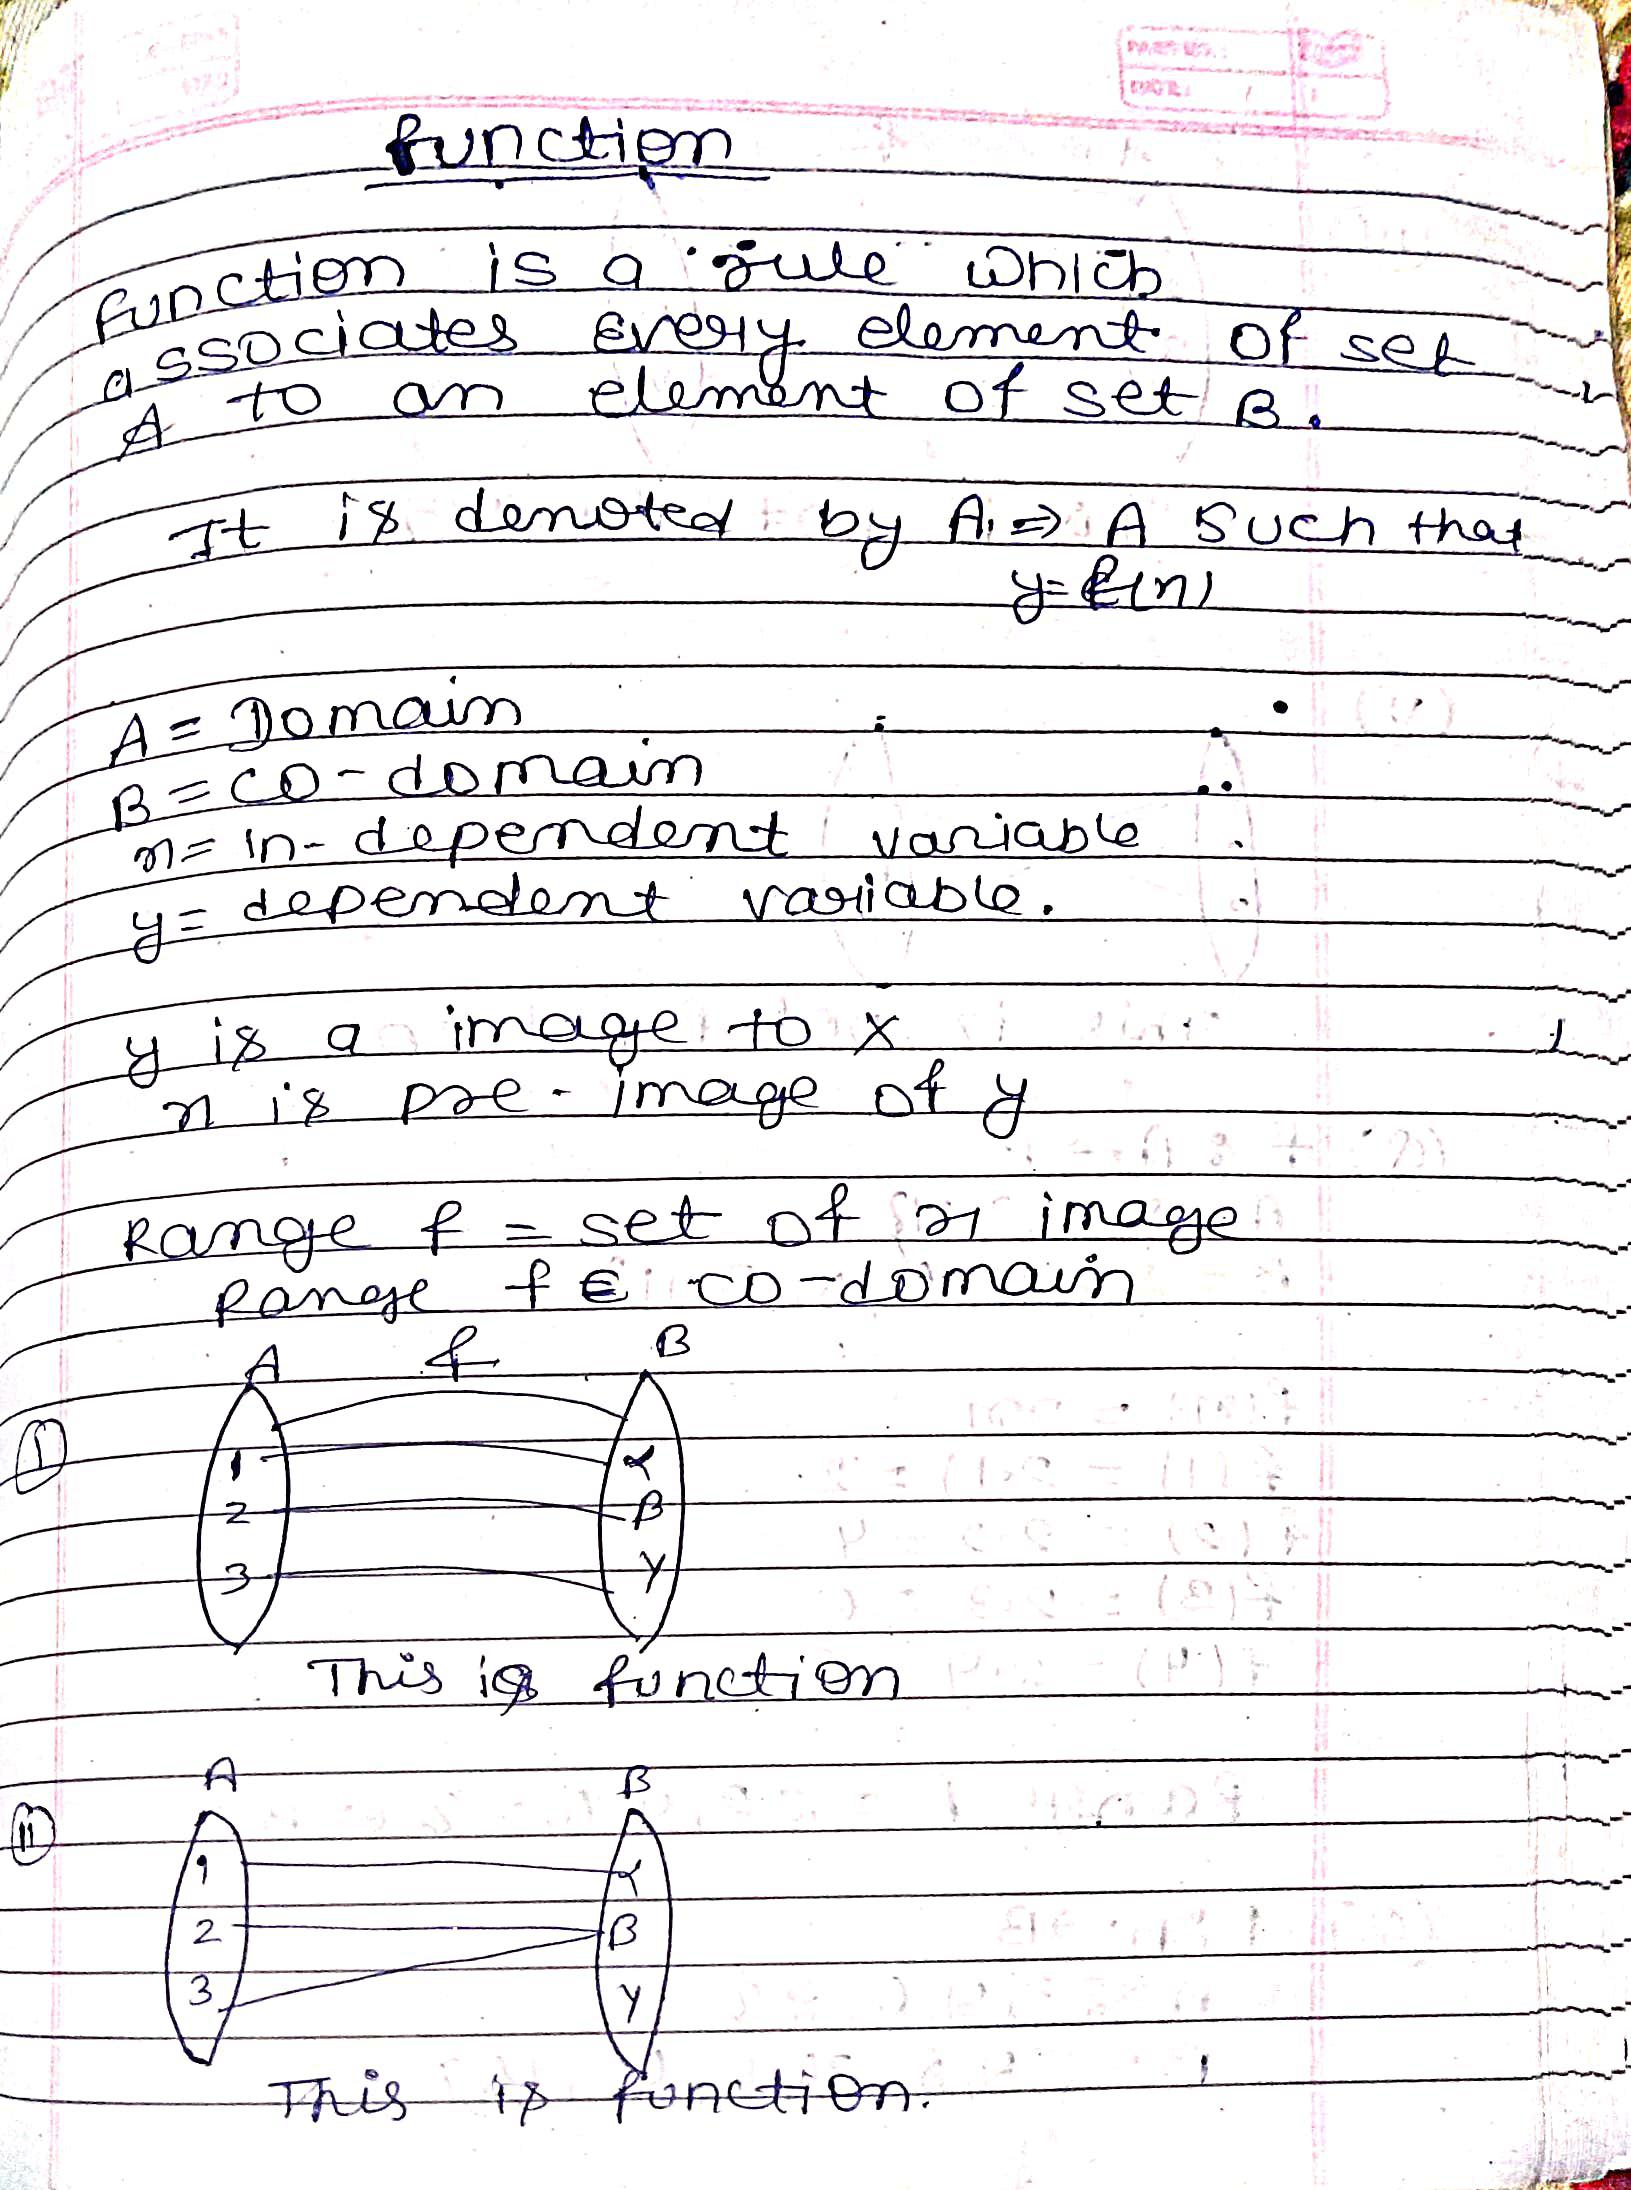 function
function is a rule which
associates every element of set
A to an element of set B.
It is denoted by A ⇒ A such that
y = f(x)
A = Domain
B = co-domain
x = in-dependent variable
y = dependent variable.
y is a image to x
x is pre-image of y
Range f = set of x image
Range f ∈ co-domain
A f B
I
1 α
2 β
3 γ
This is function
A B
II
1 α
2 β
3 γ
This is function.